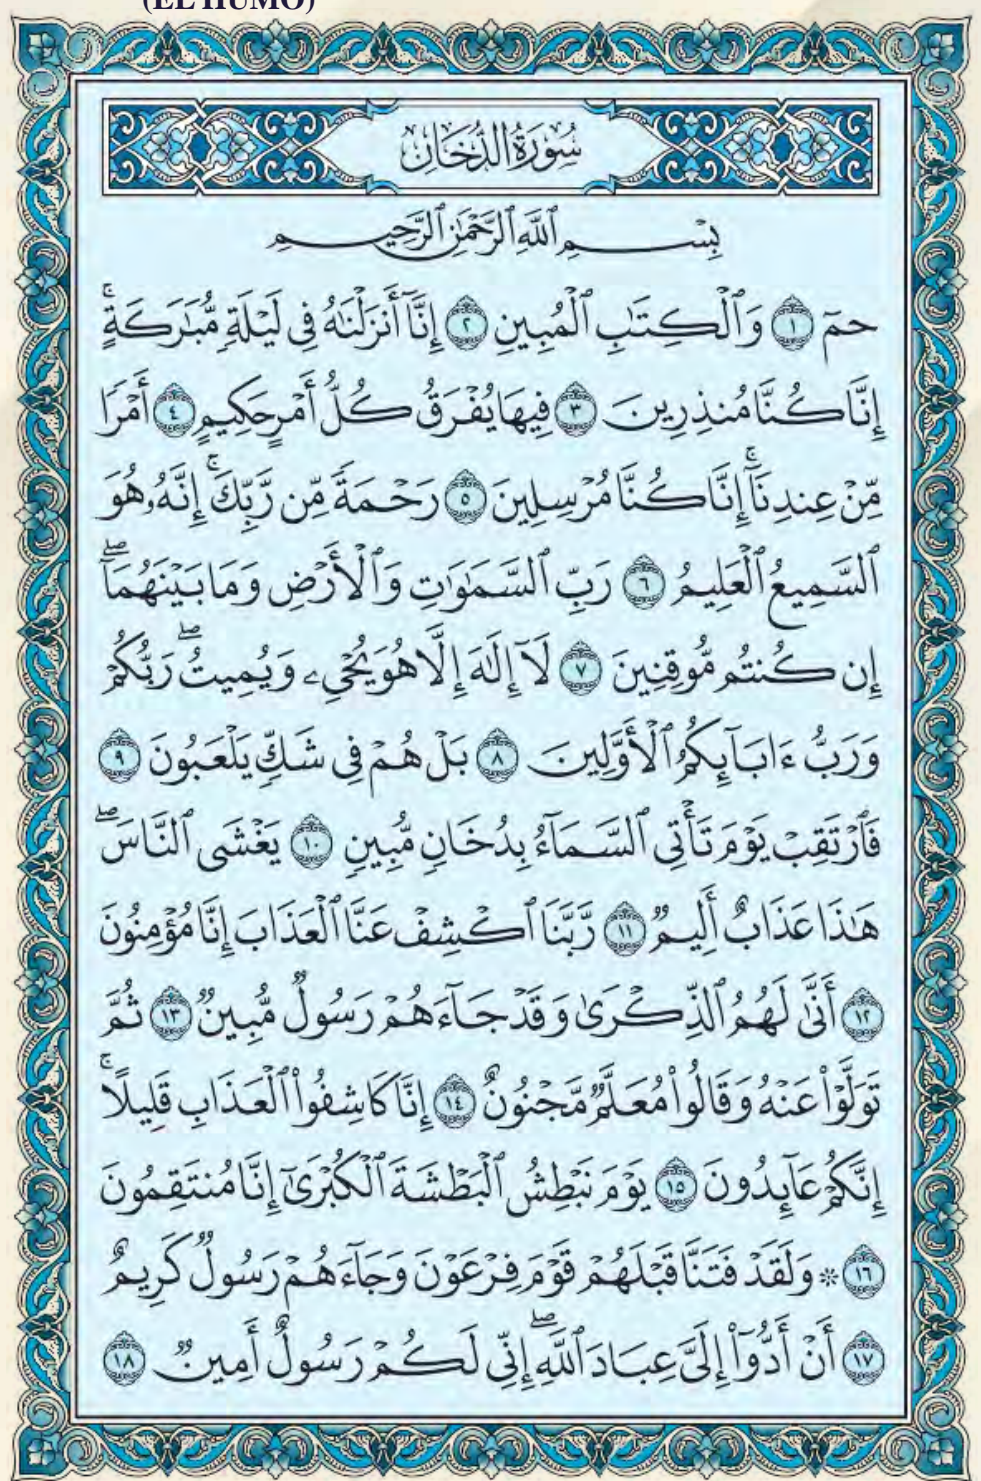 (EL HUMO)
سُورَةُ الدُّخَانِ
بِسْمِ ٱللَّهِ ٱلرَّحْمَٰنِ ٱلرَّحِيمِ
حمٓ ١ وَٱلْكِتَٰبِ ٱلْمُبِينِ ٢ إِنَّآ أَنزَلْنَٰهُ فِى لَيْلَةٍ مُّبَٰرَكَةٍ ۚ
إِنَّا كُنَّا مُنذِرِينَ ٣ فِيهَا يُفْرَقُ كُلُّ أَمْرٍ حَكِيمٍ ٤ أَمْرًا
مِّنْ عِندِنَآ ۚ إِنَّا كُنَّا مُرْسِلِينَ ٥ رَحْمَةً مِّن رَّبِّكَ ۚ إِنَّهُۥ هُوَ
ٱلسَّمِيعُ ٱلْعَلِيمُ ٦ رَبِّ ٱلسَّمَٰوَٰتِ وَٱلْأَرْضِ وَمَا بَيْنَهُمَآ ۖ
إِن كُنتُم مُّوقِنِينَ ٧ لَآ إِلَٰهَ إِلَّا هُوَ يُحْىِۦ وَيُمِيتُ ۖ رَبُّكُمْ
وَرَبُّ ءَابَآئِكُمُ ٱلْأَوَّلِينَ ٨ بَلْ هُمْ فِى شَكٍّ يَلْعَبُونَ ٩
فَٱرْتَقِبْ يَوْمَ تَأْتِى ٱلسَّمَآءُ بِدُخَانٍ مُّبِينٍ ١٠ يَغْشَى ٱلنَّاسَ ۖ
هَٰذَا عَذَابٌ أَلِيمٌ ١١ رَّبَّنَا ٱكْشِفْ عَنَّا ٱلْعَذَابَ إِنَّا مُؤْمِنُونَ
١٢ أَنَّىٰ لَهُمُ ٱلذِّكْرَىٰ وَقَدْ جَآءَهُمْ رَسُولٌ مُّبِينٌ ١٣ ثُمَّ
تَوَلَّوْا۟ عَنْهُ وَقَالُوا۟ مُعَلَّمٌ مَّجْنُونٌ ١٤ إِنَّا كَاشِفُوا۟ ٱلْعَذَابِ قَلِيلًا ۚ
إِنَّكُمْ عَآئِدُونَ ١٥ يَوْمَ نَبْطِشُ ٱلْبَطْشَةَ ٱلْكُبْرَىٰٓ إِنَّا مُنتَقِمُونَ
١٦ ۞ وَلَقَدْ فَتَنَّا قَبْلَهُمْ قَوْمَ فِرْعَوْنَ وَجَآءَهُمْ رَسُولٌ كَرِيمٌ
١٧ أَنْ أَدُّوٓا۟ إِلَىَّ عِبَادَ ٱللَّهِ ۖ إِنِّى لَكُمْ رَسُولٌ أَمِينٌ ١٨